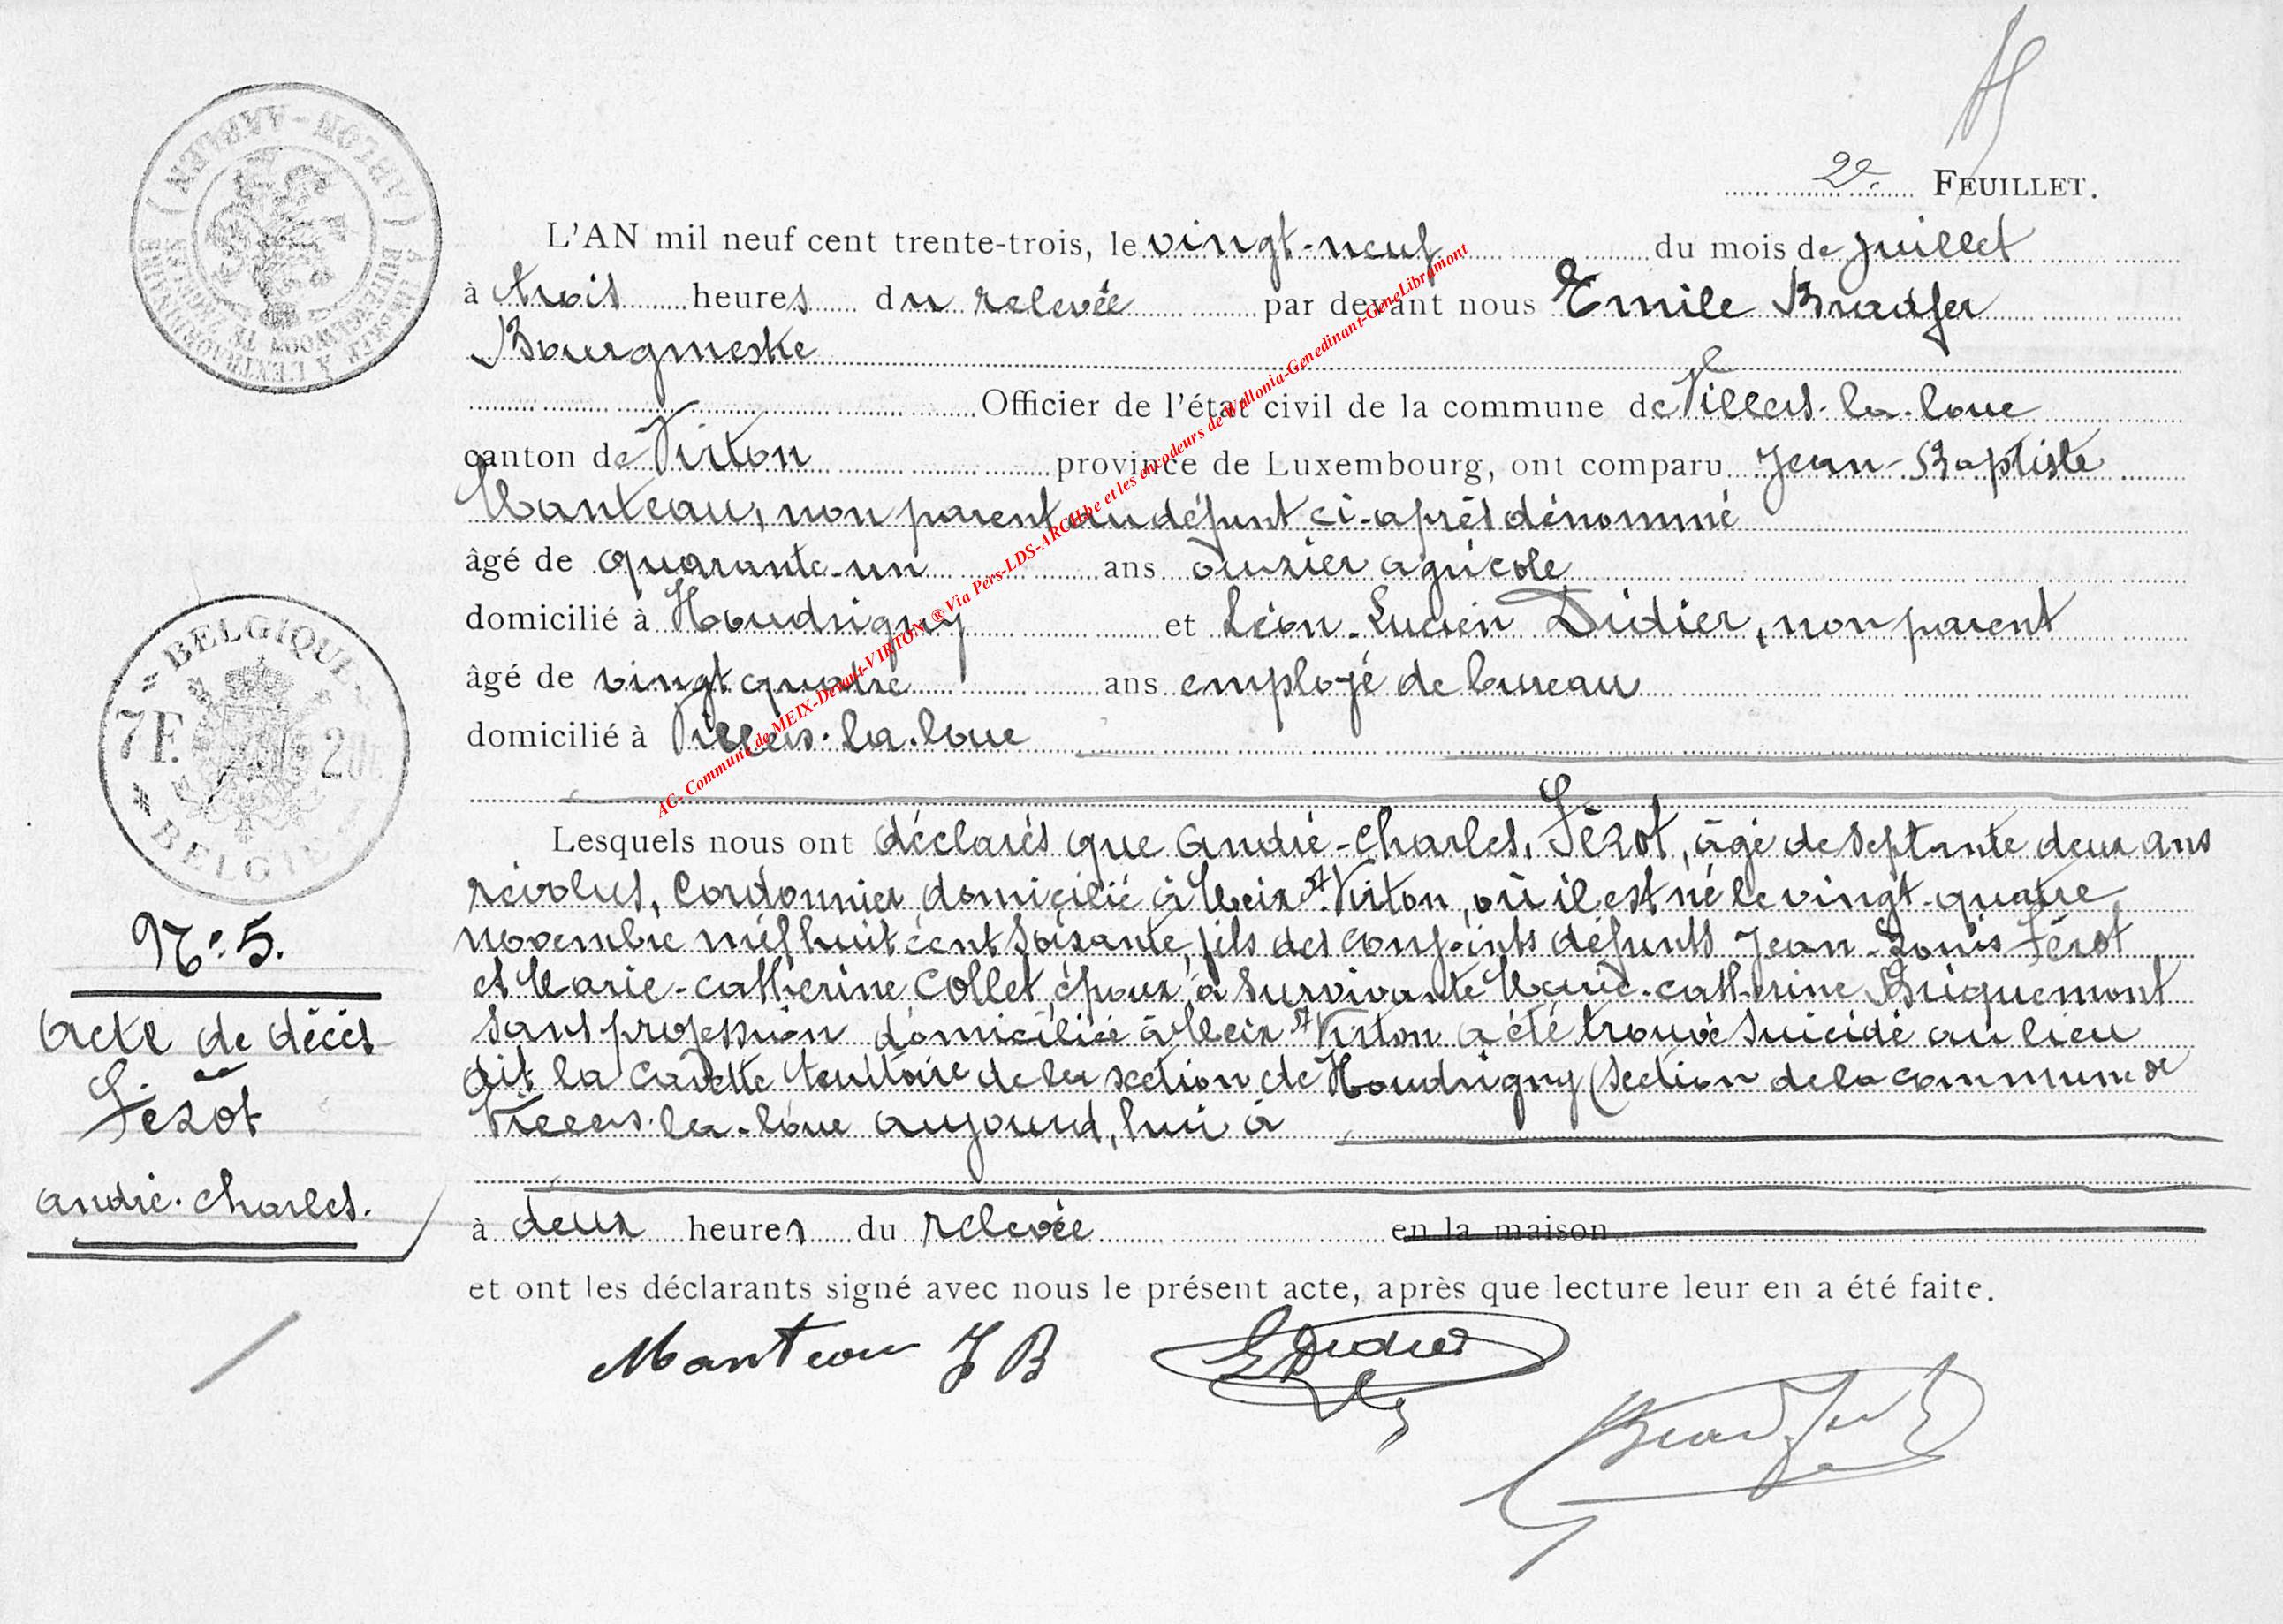 2e FEUILLET.
L'AN mil neuf cent trente-trois, le vingt-neuf du mois de Juillet
à trois heures du relevée par devant nous Emile Bradfer
Bourgmestre
Officier de l'état civil de la commune de Villers-la-loue
canton de Virton province de Luxembourg, ont comparu Jean-Baptiste
Manteau, non parent au défunt ci-après dénommé
âgé de quarante-un ans ouvrier agricole
domicilié à Houdrigny et Léon-Lucien Didier, non parent
âgé de vingt quatre ans employé de bureau
domicilié à Villers-la-loue
Lesquels nous ont déclarés que André-Charles, Férot, âgé de septante deux ans
révolus, Cordonnier domicilié à Meix dt Virton, où il est né le vingt-quatre
novembre mil huit cent soixante, fils des conjoints défunts Jean-Louis Férot
et Marie-Catherine Collet, époux à survivante Marie-Catherine Briquemont
sans profession domiciliée à Meix dt Virton a été trouvé suicidé au lieu
dit la Cavette territoire de la section de Houdrigny (section de la commune de
Villers-la-loue aujourd'hui à
à deux heures du relevée en la maison
et ont les déclarants signé avec nous le présent acte, après que lecture leur en a été faite.
Manteau J B
L Didier
Bradfer
No 5.
Acte de décès
Férot
André-Charles.
BELGIQUE
7F. 20c
BELGIE
ARLON - AARLEN
AC- Commune de MEIX-Devant-VIRTON ® Via Pers-LDS-ARCH.be et les encodeurs de Wallonia-Genedinant-GeneLibramont